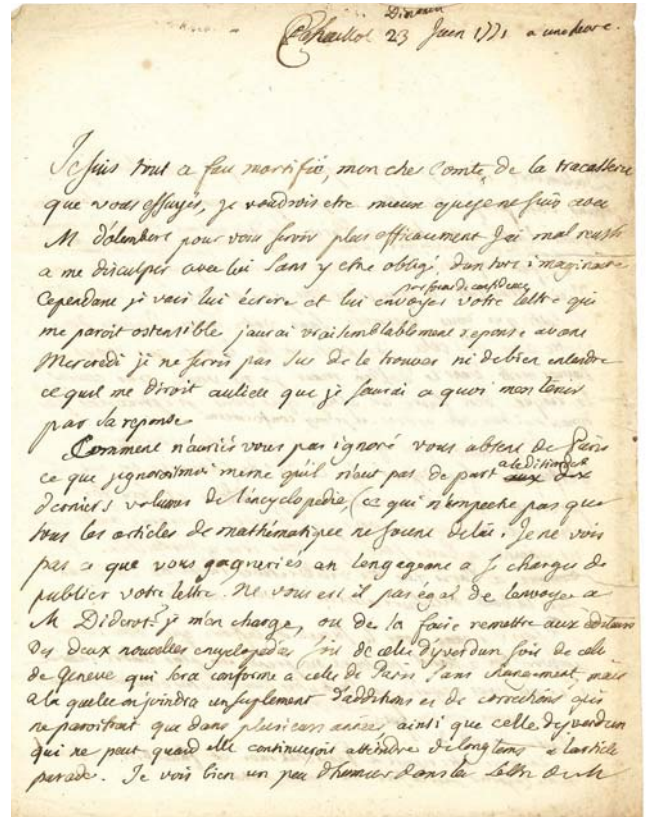 Dimanche
Chaillot 23 Juin 1771 a une heure.
Je suis tout a fait mortifié, mon cher Comte, de la tracasserie
que vous essuyés, je voudrois etre mieux que je ne suis avec
M d'alembert pour vous servir plus efficacement J'ai mal reussi
a me disculper avec lui sans y etre obligé, d'un tort imaginaire
Cependant je vais lui écrire et lui envoyer par forme de confidence votre lettre qui
me paroit ostensible j'aurai vraisemblablement reponse avant
Mercredi je ne serois pas sur de le trouver ni de bien entendre
ce quil me diroit aulieu que je saurai a quoi m'en tenir
par sa reponse
Comment n'auriés vous pas ignoré vous absent de Paris
ce que j'ignorois moi meme qu'il n'eut pas de part a l'edition des
derniers volumes de l'encyclopedie, (ce qui n'empeche pas que
tous les articles de mathématique ne soient de lui. Je ne vois
pas ce que vous gagneriés en l'engageant a se charger de
publier votre lettre. Ne vous est il pas égal de l'envoyer a
M Diderot? je m'en charge, ou de la faire remettre aux éditeurs
des deux nouvelles encyclopedies soit de celle d'yverdun soit de celle
de Geneve qui sera conforme a celle de Paris sans changement, mais
a la quelle on joindra un suplement d'additions et de corrections qui
ne paroitront que dans plusieurs années ainsi que celle d'yverdun
qui ne peut quand elle continueroit atteindre de longtems a l'article
parade. Je vois bien un peu d'humeur dans la lettre de M